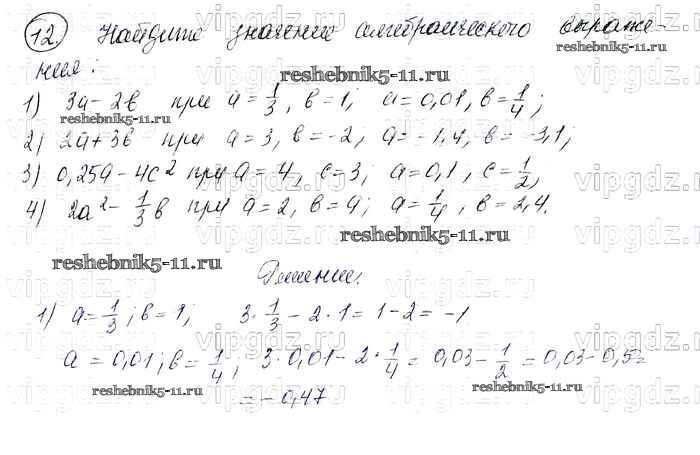 12. Найдите значение алгебраического выраже-
ния:
1) 3a - 2b при a = 1/3, b = 1; a = 0,01, b = 1/4;
2) 2a + 3b при a = 3, b = -2; a = -1,4, b = -3,1;
3) 0,25a - 4c² при a = 4, c = 3; a = 0,1, c = 1/2;
4) 2a² - 1/3 b при a = 2, b = 9; a = 1/4, b = 2,4.
Решение.
1) a = 1/3; b = 1; 3 · 1/3 - 2 · 1 = 1 - 2 = -1
a = 0,01; b = 1/4; 3 · 0,01 - 2 · 1/4 = 0,03 - 1/2 = 0,03 - 0,5 =
= -0,47
reshebnik5-11.ru
reshebnik5-11.ru
reshebnik5-11.ru
reshebnik5-11.ru
reshebnik5-11.ru
reshebnik5-11.ru
reshebnik5-11.ru
vipgdz.ru